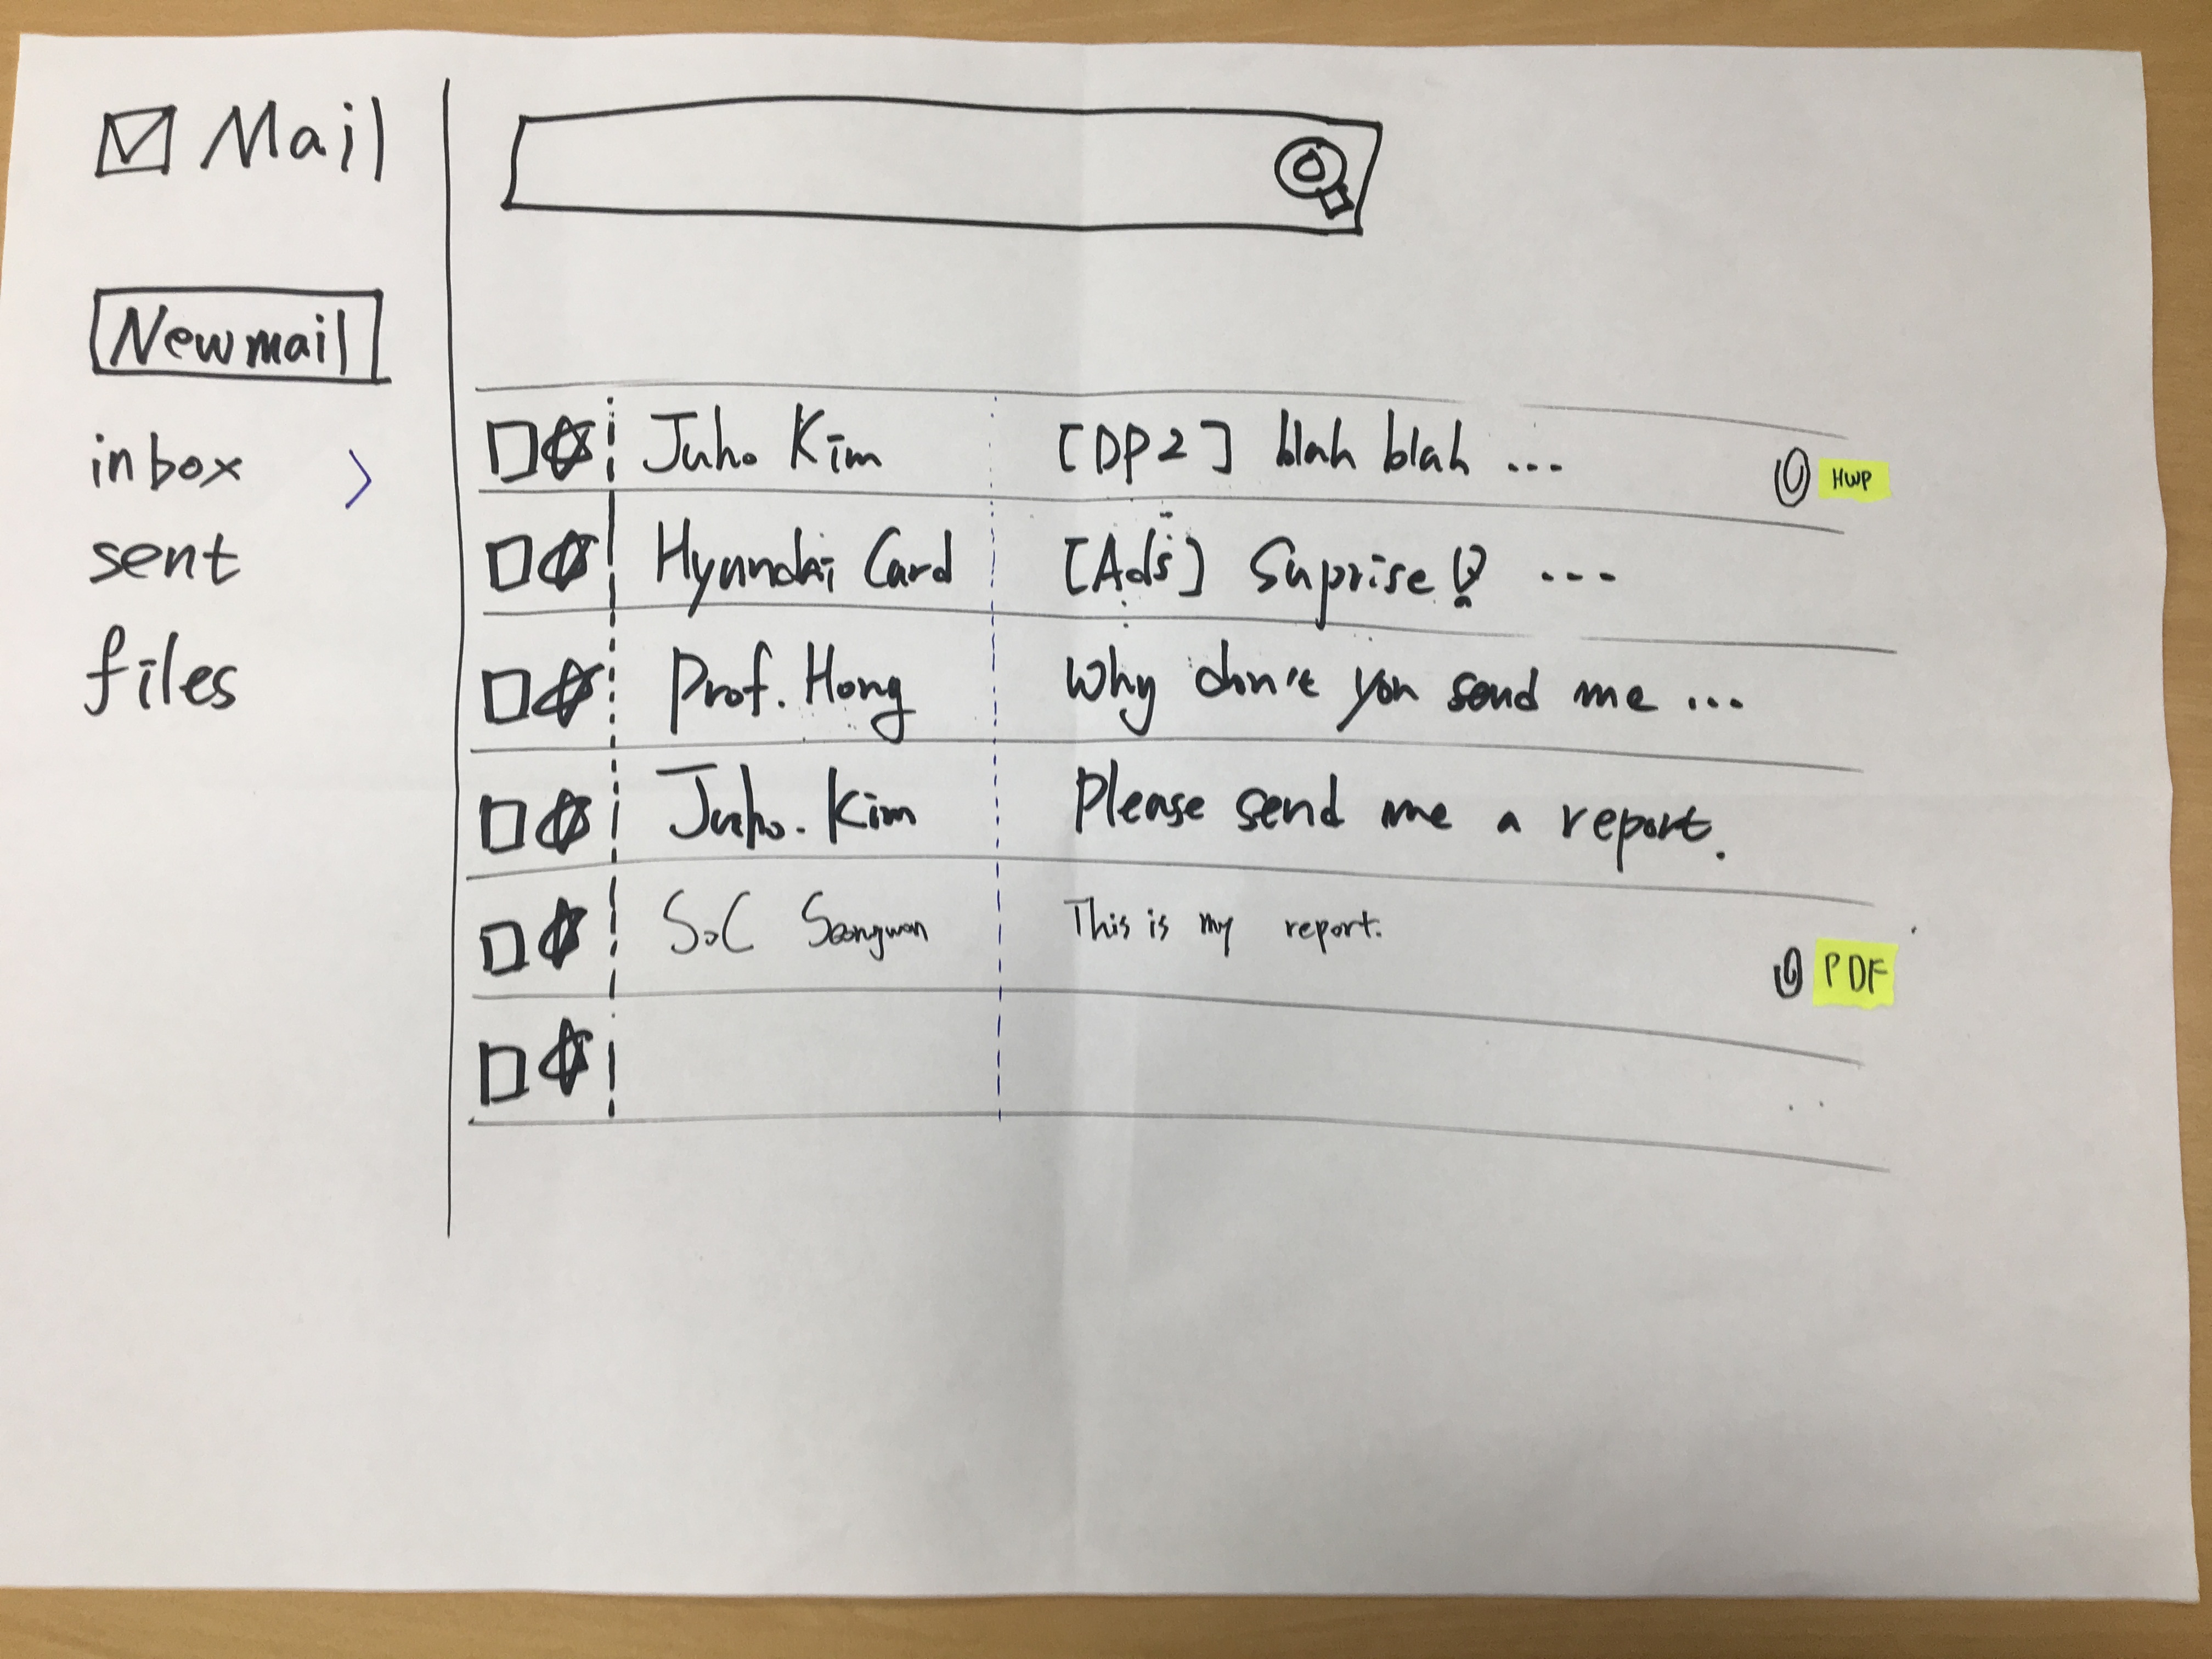 Mail
New mail
inbox >
sent
files
Juho Kim [DP2] blah blah ... HWP
Hyundai Card [Ads] Suprise! ---
Prof. Hong Why don't you send me ...
Juho. Kim Please send me a report.
SoC Seongwon This is my report. PDF